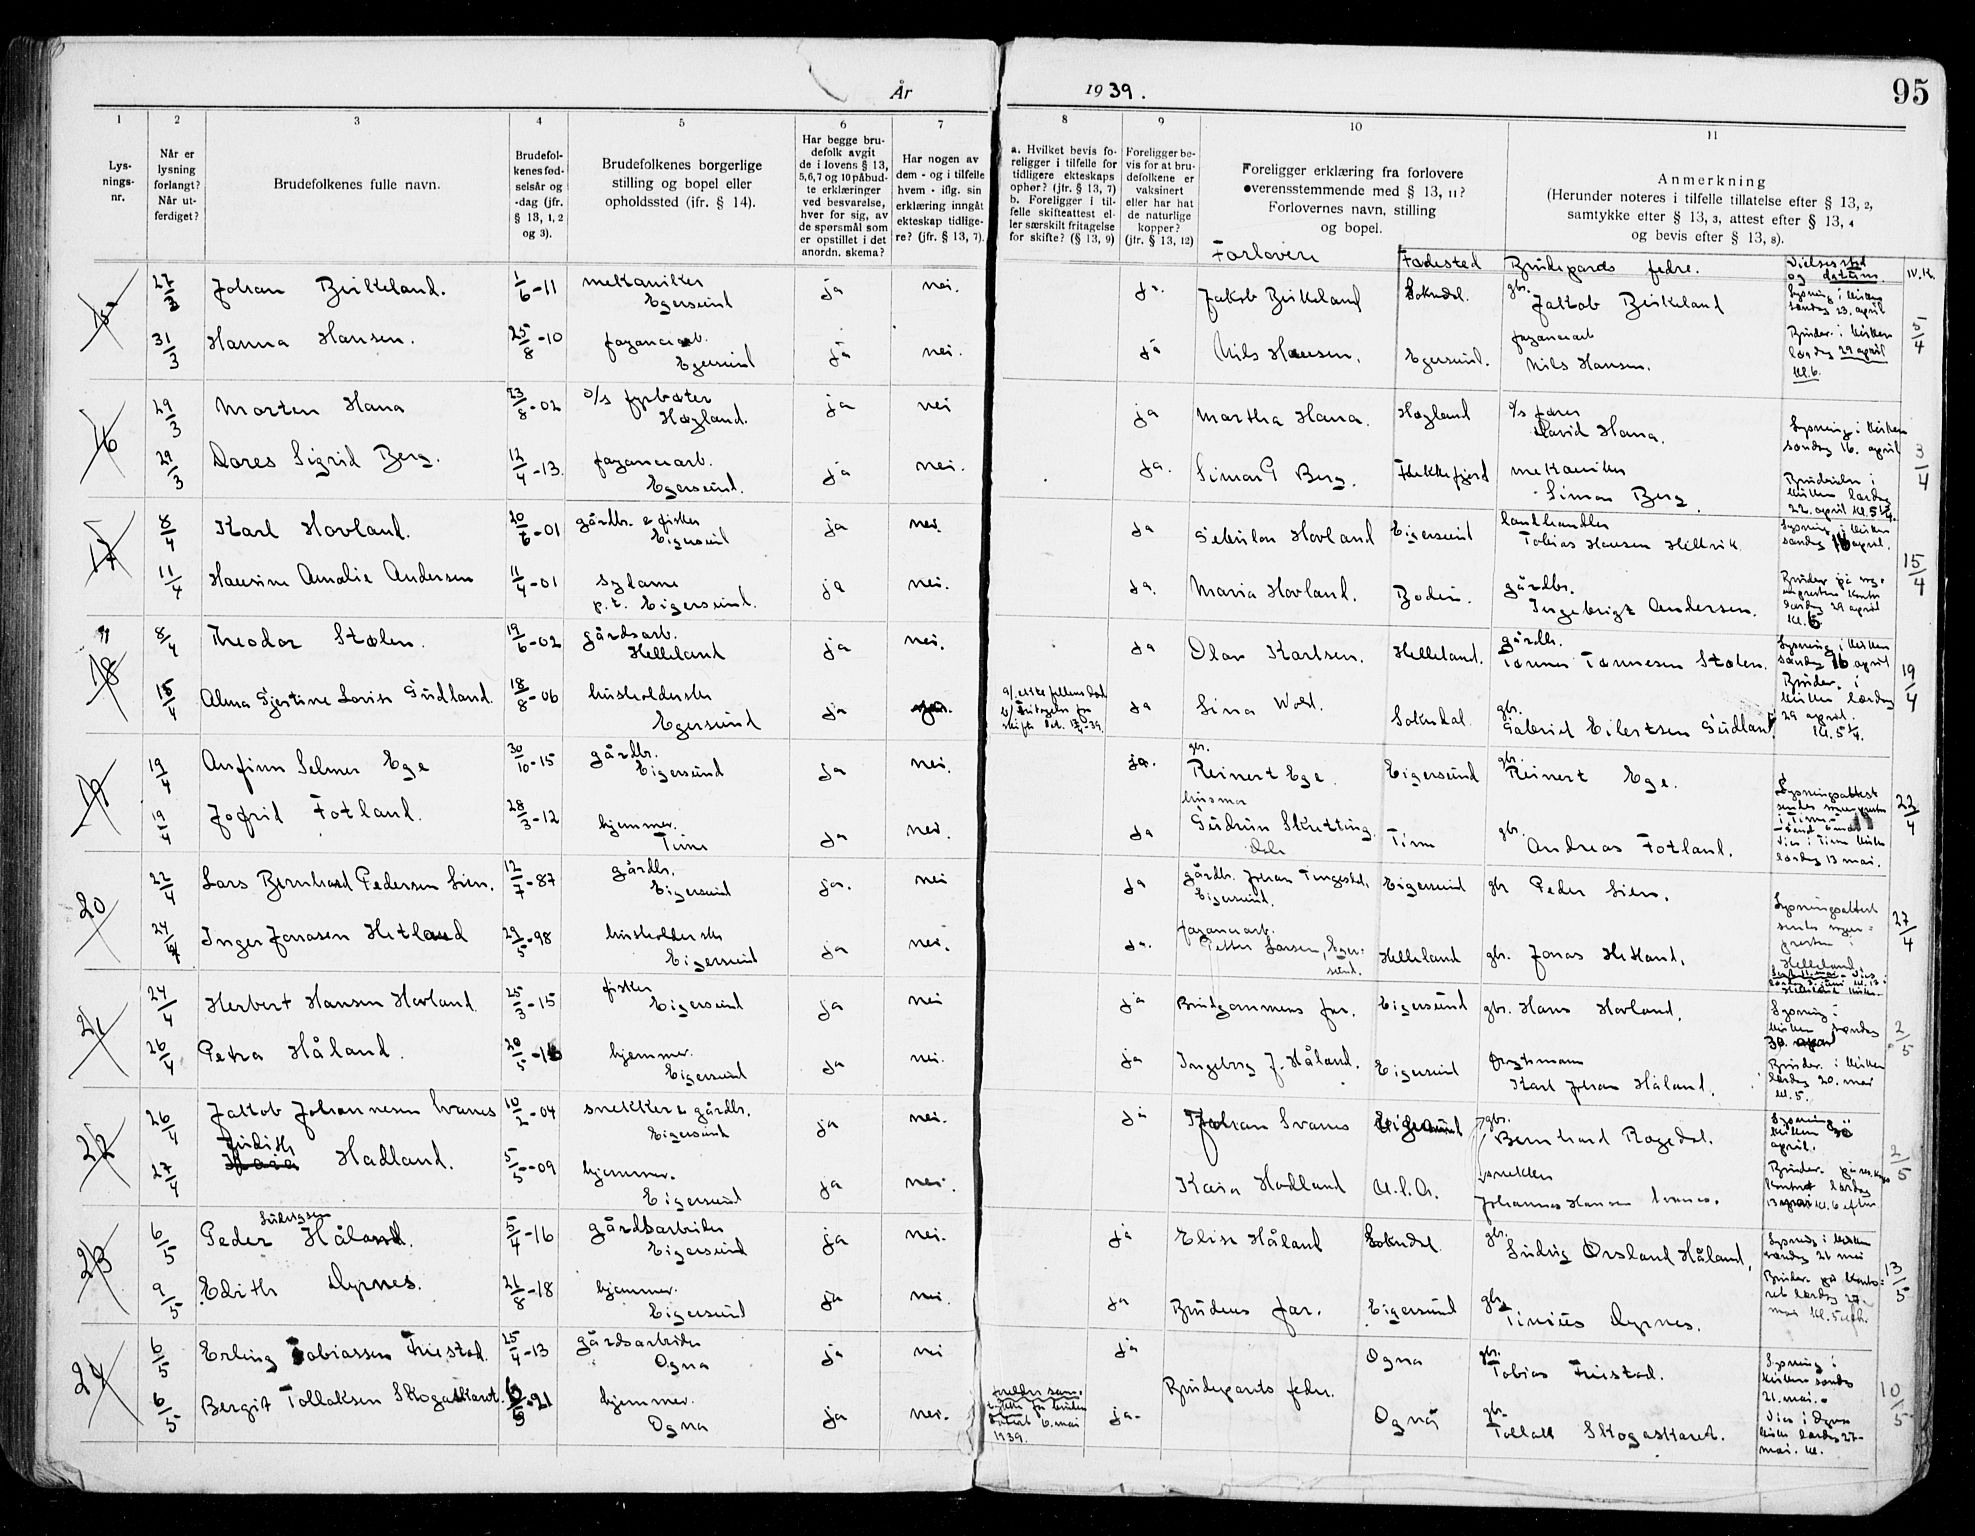 År 1939.
95
1 2 3 4 5 6 7 8 9 10 11
Lys-
nings-
nr.
Når er
lysning
forlangt?
Når ut-
ferdiget?
Brudefolkenes fulle navn.
Brudefol-
kenes fød-
selsår og
-dag (jfr.
§ 13, 1, 2
og 3).
Brudefolkenes borgerlige
stilling og bopel eller
opholdssted (ifr. § 14).
Har begge bru-
defolk avgit
de i lovens § 13,
5,6,7 og 10 påbud-
te erklæringer
ved besvarelse,
hver for sig, av
de spørsmål som
er opstillet i det
anordn. skema?
Har nogen av
dem - og i tilfelle
hvem - iflg. sin
erklæring inngåt
ekteskap tidlige-
re? (jfr. § 13, 7).
a. Hvilket bevis fo-
religger i tilfelle for
tidligere ekteskaps
ophør? (jfr. § 13, 7)
b. Foreligger i til-
felle skifteattest el-
ler særskilt fritagelse
for skifte? (§ 13, 9)
Foreligger be-
vis for at bru-
defolkene er
vaksinert
eller har hat
de naturlige
kopper?
(jfr. § 13, 12)
Foreligger erklæring fra forlovere
overensstemmende med § 13, 11?
Forlovernes navn, stilling
og bopel.
Anmerkning
(Herunder noteres i tilfelle tillatelse efter § 13, 2,
samtykke efter § 13, 3, attest efter § 13, 4
og bevis efter § 13, 8).
Forlovere Fødested Brudeparets fedre. Vielsessted
og datum
27/3 Johan Birkeland. 1/6-11 mekaniker
Egersund ja nei. ja. Jakob Birkeland Sokndal. gbr. Jakob Birkeland Lysning i kirken
søndag 23. april
31/3 Hanna Hansen. 25/8-10 fayancearb.
Egersund ja nei. ja Nils Hansen. Egersund. fayancearb
Nils Hansen. Brudev. i kirken
lørdag 29 april
kl. 6. 5/4
16 29/3 Morten Hana 23/8-02 o/s fyrbøter
Høyland. ja nei ja Martha Hana. Høyland o/s fører
David Hana. Lysning i kirken
søndag 16. april
29/3 Dores Sigrid Berg. 12/4-13. fayancearb.
Egersund. ja nei. ja. Simon G Berg. Flekkefjord mekaniker
Simon Berg. Brudevielse i
kirken lørdag
22. april kl. 5 1/4. 3/4
17 8/4 Karl Hovland. 20/6-01 gårdbr. & fisker
Eigersund ja nei. ja Sebulon Hovland Eigersund landhandler
Tobias Hansen Hellvik Lysning i kirken
søndag 16 april.
11/4 Hansine Amalie Andersen 11/4-01 sydame
p.t. Eigersund. ja nei. ja. Maria Hovland. Bodin. gårdbr.
Ingebrigt Andersen. lørdag 29 april
kl. 5 15/4
18 8/4 Theodor Stølen. 19/6-02 gårdsarb.
Helleland ja nei. ja Olav Karlsen. Helleland. gårdbr.
Tønnes Tønnesen Stølen. Lysning i kirken
søndag 16 april
15/4 Alma Gjertine Lovise Gudland. 18/8-06 husholderske
Egersund ja ja. ja Sina Wold. Sokndal. gbr.
Gabriel Eilertsen Gudland. Brudev. i
kirken lørdag
29 april.
kl. 5 1/4. 19/4
19 19/4 Anfinn Selmer Ege 30/10-15 gårdbr.
Eigersund ja nei. ja. gbr.
Reinert Ege. Eigersund gbr.
Reinert Ege. Lysningsattest
19/4 Jofrid Fotland. 28/3-12 hjemmev.
Time ja nei. ja husmor
Gudrun Skretting. Time gbr.
Andreas Fotland. Vies i Time kirke
lørdag 13 mai. 22/4
20 22/4 Lars Bernhard Pedersen Lien. 12/7-87 gårdbr.
Eigersund ja. nei ja gårdbr. Johan Tengesdal,
Eigersund. Eigersund gbr Peder Lien. Lysningsattest
24/4 Inger Jonasen Hetland 29/5-98 husholderske
Eigersund ja nei. ja. fayancearb.
Petter Larsen, Eger-
sund. Helleland gbr. Jonas Hetland. Helleland. 27/4
21 24/4 Herbert Hansen Hovland 25/3-15 fisker
Eigersund ja nei ja Brudgommens far. Eigersund gbr. Hans Hovland. Lysning i
kirken søndag
30. april
26/4 Petra Håland. 20/5-16 hjemmev.
Eigersund ja nei. ja Ingeborg J. Håland. Eigersund Karl Johan Håland. Brudev. i kirken
lørdag 20. mai
kl. 5. 2/5
22 26/4 Jakob Johannesen Svanes 10/2-04 snekker & gårdbr.
Eigersund ja nei. ja Johan Svanes Eigersund gbr.
Bernhard Rogedal. Lysning i
kirken 30
april.
27/4 Judith Hadland. 5/5-09 hjemmev.
Eigersund ja nei. Kaia Hadland U.S.A. snekker
Johannes Hansen Svanes. 13 mai kl. 6 efter 2/5
23 6/5 Peder Ludvigsen Håland. 5/4-16 gårdsarbeider
Eigersund ja nei. ja Elise Håland Sokndal gbr.
Ludvig Orsland Håland, Lysning i kirken
søndag 21 mai
9/5 Edith Dyrnes. 21/8-18 hjemmev.
Eigersund ja nei. ja Brudens far. Eigersund gbr
Tinius Dyrnes. Brudev. på konto-
ret lørdag 27.
mai kl. 5 efm. 13/5
24 6/5 Erling Tobiassen Fuestad. 25/4-13 gårdsarbeider
Ogna ja nei ja Brudeparets fedre. Ogna gbr.
Tobias Fuestad. Lysning i
kirken søndag
21. mai.
6/5 Bergit Tollaksen Skogaskaret. hjemmev.
Ogna ja nei. 6. mai
1939. ja. Ogna gbr.
Tollak Skogaskaret. Vies i Ogna
kirke lørdag 27-
mai. kl. 10/5